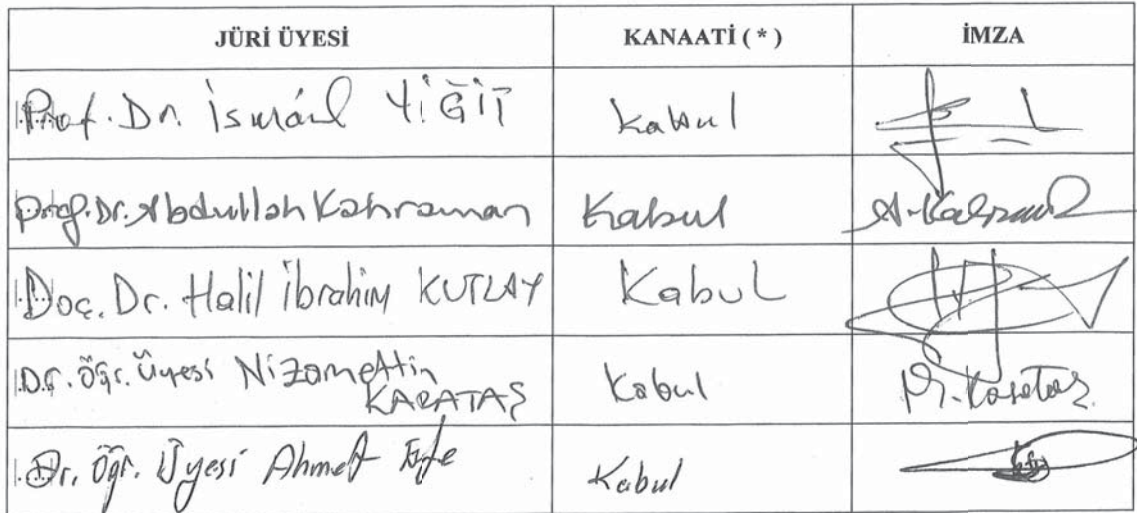 JÜRİ ÜYESİ KANAATİ ( * ) İMZA
Prof. Dr. İsmáil YİĞİT Kabul
Prof. Dr. Abdullah Kahraman Kabul A. Kahraman
Doç. Dr. Halil İbrahim KUTLAY Kabul
Dr. Öğr. Üyesi Nizamettin KARATAŞ Kabul N. Karataş
Dr. Öğr. Üyesi Ahmet Efe Kabul